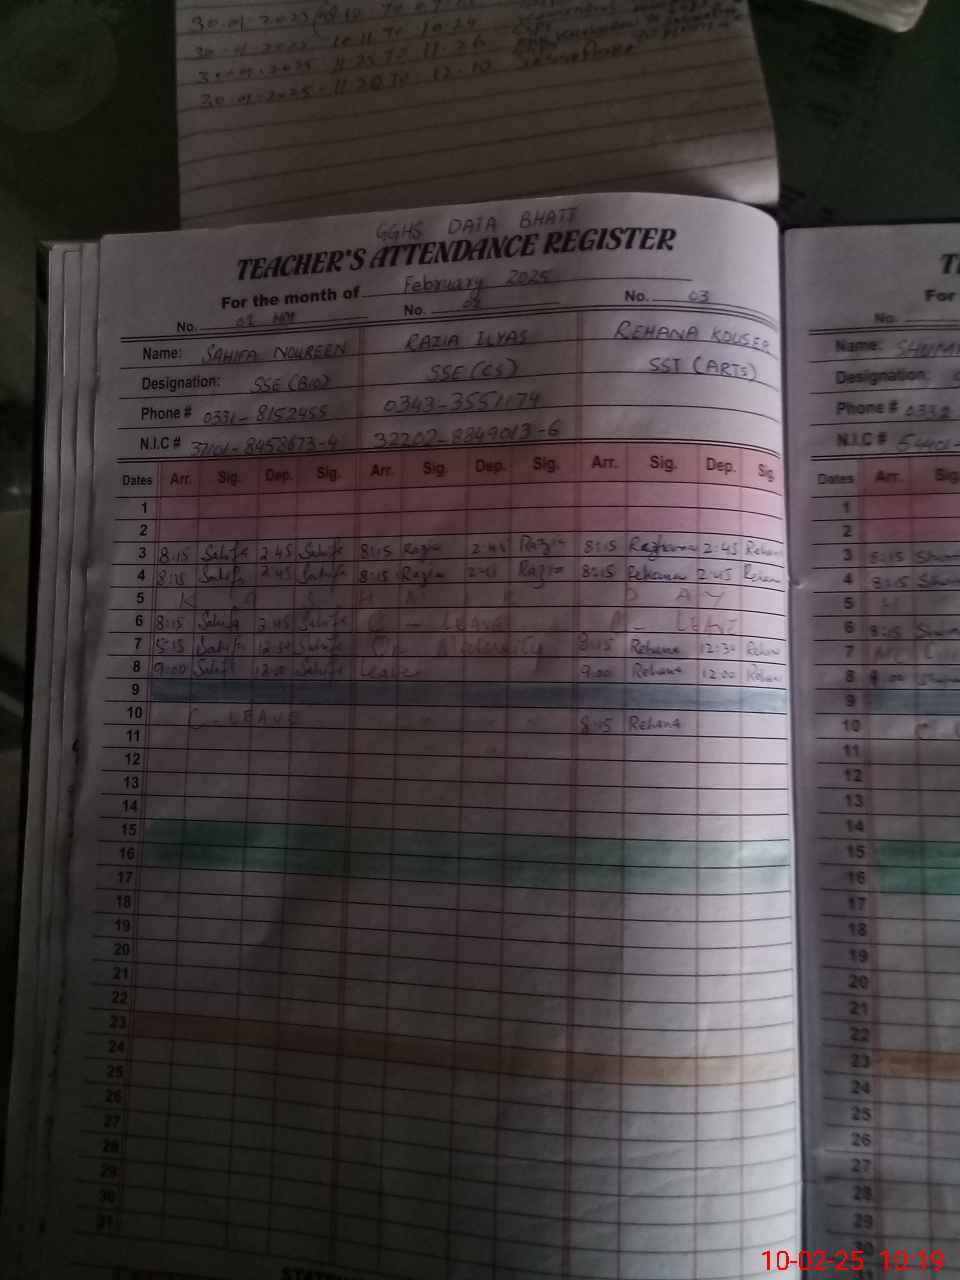 30.01.2025
30.01.2025 10.11 To 10.24
30.01.2025 11.25 To 11.26
30.01.2025 11.28 To 12.10
GGHS DATA BHATT
TEACHER'S ATTENDANCE REGISTER
For the month of February 2025
No. 01 HM No. 02 No. 03
Name: SAHIFA NOUREEN RAZIA ILYAS REHANA KOUSER
Designation: SSE (BIO) SSE (CS) SST (ARTS)
Phone # 0331-8152455 0343-3551174
N.I.C # 37101-8452673-4 32202-8849013-6
Dates Arr. Sig. Dep. Sig. Arr. Sig. Dep. Sig. Arr. Sig. Dep. Sig.
1
2
3 8:15 Sahifa 2:45 Sahifa 8:15 Razia 2:45 Razia 8:15 2:45 Rehana
4 8:15 Sahifa 2:45 Sahifa 8:15 Razia 2:45 Razia 8:15 Rehana 2:45 Rehana
5 K A S H M I R D A Y
6 8:15 Sahifa 2:45 Sahifa C - LEAVE M - LEAVE
7 Sahifa 12:30 Sahifa On Maternity 8:15 Rehana 12:30 Rehana
8 9:00 Sahifa 12:00 Sahifa Leave 9:00 Rehana 12:00 Rehana
9
10 C - LEAVE 8:15 Rehana
11
12
13
14
15
16
17
18
19
20
21
22
23
24
25
26
27
28
29
30
31
For
No.
Name:
Designation:
Phone # 0332
N.I.C # 54401-
Dates Arr. Sig
1
2
3 8:15
4 8:15
5
6 8:15
7
8 9:00
9
10 C
11
12
13
14
15
16
17
18
19
20
21
22
23
24
25
26
27
28
29
30
10-02-25 10:19